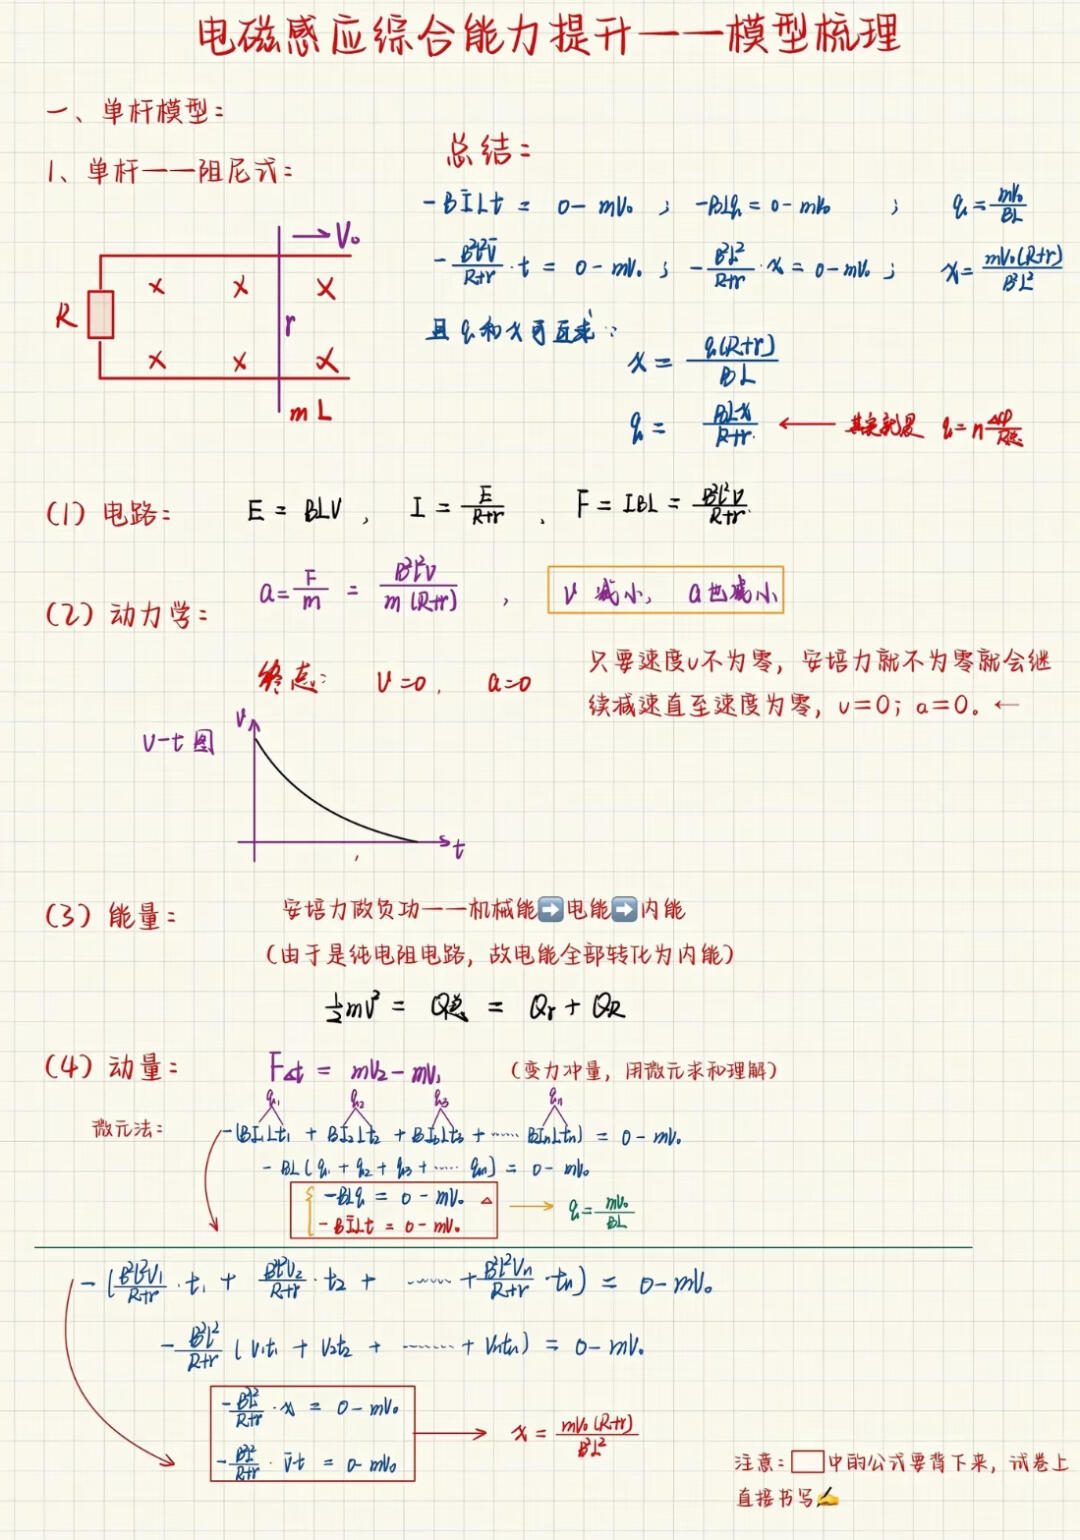 电磁感应综合能力提升——模型梳理
一、单杆模型:
1、单杆——阻尼式:
V₀
R
r
m L
总结:
-BĪLt = 0-mV₀ ; -BLq = 0-mV₀ ; q = mV₀/BL
-B²L²V̄/(R+r)·t = 0-mV₀ ; -B²L²/(R+r)·x = 0-mV₀ ; x = mV₀(R+r)/B²L²
且 q 和 x 可互求:
x = q(R+r)/BL
q = BLx/(R+r) ← 其实就是 q = nΔφ/R总
(1) 电路: E = BLV , I = E/(R+r) , F = IBL = B²L²V/(R+r)
(2) 动力学: a = F/m = B²L²V/m(R+r) , V 减小, a也减小
终态: V=0, a=0
只要速度v不为零, 安培力就不为零就会继
续减速直至速度为零, v=0; a=0。←
V-t 图
V
t
(3) 能量: 安培力做负功——机械能➡电能➡内能
(由于是纯电阻电路, 故电能全部转化为内能)
½mV² = Q总 = Qr + QR
(4) 动量: FΔt = mV₂-mV₁ (变力冲量, 用微元求和理解)
q₁ q₂ q₃ qn
微元法: -(BI₁Lt₁ + BI₂Lt₂ + BI₃Lt₃ + …… BInLtn) = 0-mV₀
-BL(q₁ + q₂ + q₃ + …… qn) = 0-mV₀
-BLq = 0-mV₀ △ → q = mV₀/BL
-BĪLt = 0-mV₀
-(B²L²V₁/(R+r)·t₁ + B²L²V₂/(R+r)·t₂ + …… + B²L²Vn/(R+r)·tn) = 0-mV₀
-B²L²/(R+r) (V₁t₁ + V₂t₂ + …… + Vntn) = 0-mV₀
-B²L²/(R+r)·x = 0-mV₀ → x = mV₀(R+r)/B²L²
-B²L²/(R+r)·V̄t = 0-mV₀
注意: □中的公式要背下来, 试卷上
直接书写✍